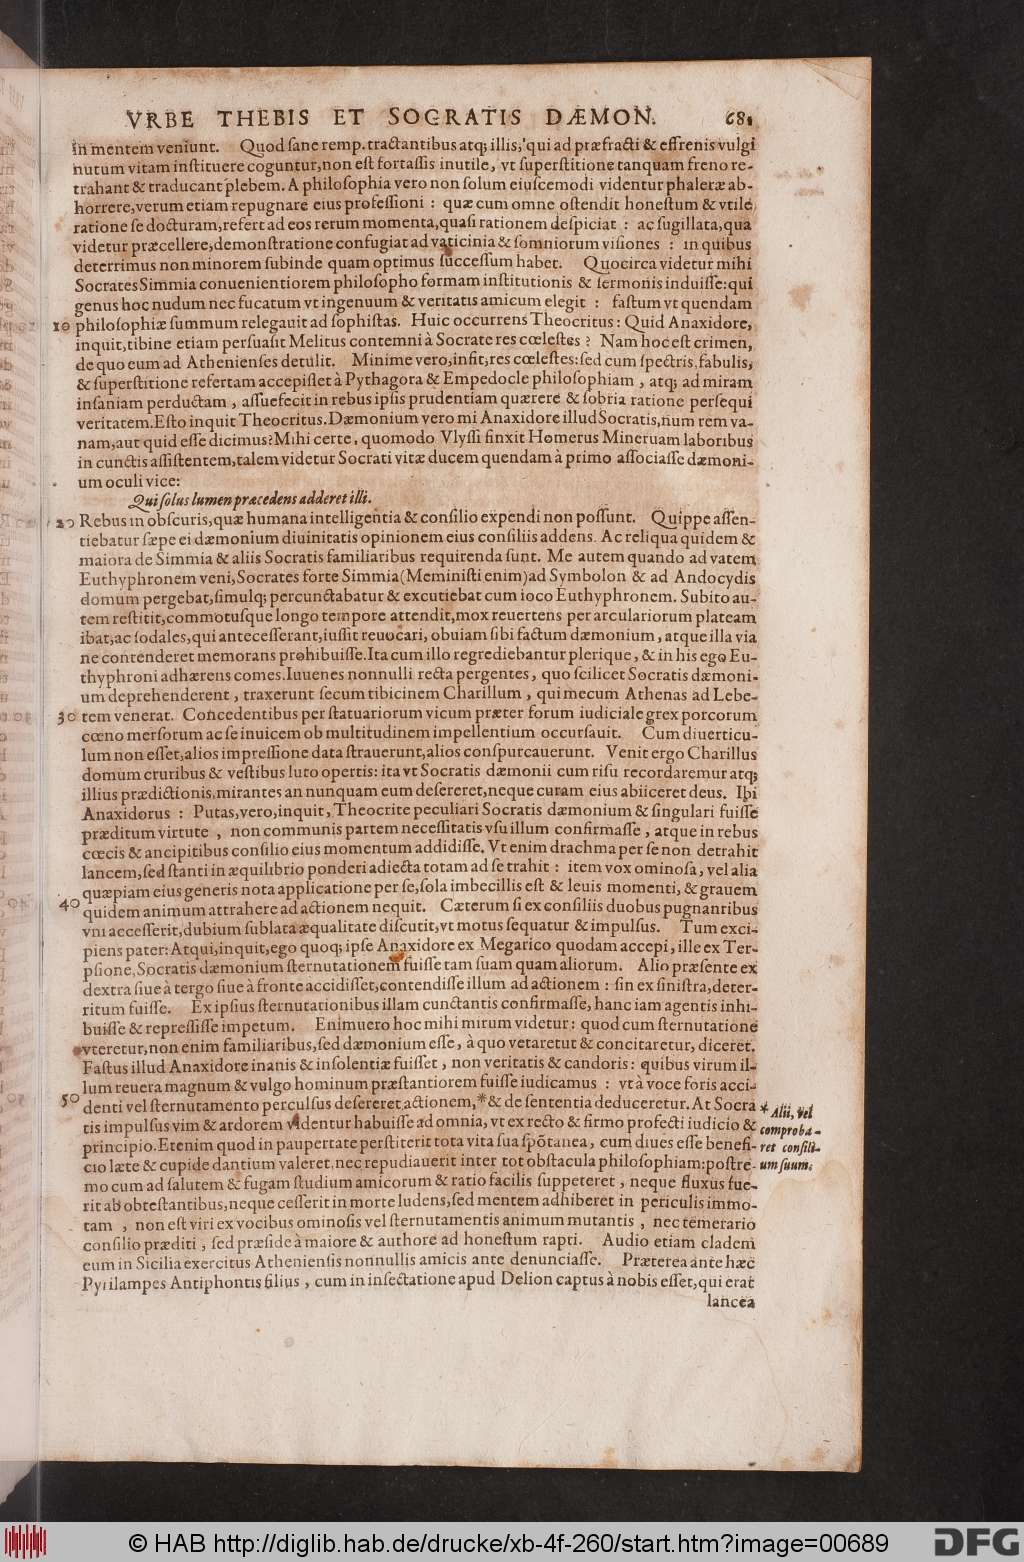 VRBE THEBIS ET SOCRATIS DÆMON. 681
in mentem veniunt. Quod ſane remp. tractantibus atq; illis, qui ad præfracti & effrenis vulgi
nutum vitam inſtituere coguntur, non eſt fortaſſis inutile, vt ſuperſtitione tanquam freno re-
trahant & traducant plebem. A philoſophia vero non ſolum eiuſcemodi videntur phaleræ ab-
horrere, verum etiam repugnare eius profeſſioni : quæ cum omne oſtendit honeſtum & vtile
ratione ſe docturam, refert ad eos rerum momenta, quaſi rationem deſpiciat : ac ſugillata, qua
videtur præcellere, demonſtratione confugiat ad vaticinia & ſomniorum viſiones : in quibus
deterrimus non minorem ſubinde quam optimus ſucceſſum habet. Quocirca videtur mihi
Socrates Simmia conuenientiorem philoſopho formam inſtitutionis & ſermonis induiſſe: qui
genus hoc nudum nec fucatum vt ingenuum & veritatis amicum elegit : faſtum vt quendam
10 philoſophiæ ſummum relegauit ad ſophiſtas. Huic occurrens Theocritus : Quid Anaxidore,
inquit, tibine etiam perſuaſit Melitus contemni à Socrate res cœleſtes ? Nam hoc eſt crimen,
de quo eum ad Athenienſes detulit. Minime vero, infit, res cœleſtes: ſed cum ſpectris, fabulis,
& ſuperſtitione refertam accepiſſet à Pythagora & Empedocle philoſophiam, atq; ad miram
inſaniam perductam, aſſuefecit in rebus ipſis prudentiam quærere & ſobria ratione perſequi
veritatem. Eſto inquit Theocritus. Dæmonium vero mi Anaxidore illud Socratis, num rem va-
nam, aut quid eſſe dicimus? Mihi certe, quomodo Vlyſſi finxit Homerus Mineruam laboribus
in cunctis aſſiſtentem, talem videtur Socrati vitæ ducem quendam à primo aſſociaſſe dæmoni-
um oculi vice:
Qui ſolus lumen præcedens adderet illi.
20 Rebus in obſcuris, quæ humana intelligentia & conſilio expendi non poſſunt. Quippe aſſen-
tiebatur ſæpe ei dæmonium diuinitatis opinionem eius conſiliis addens. Ac reliqua quidem &
maiora de Simmia & aliis Socratis familiaribus requirenda ſunt. Me autem quando ad vatem
Euthyphronem veni, Socrates forte Simmia (Meminiſti enim) ad Symbolon & ad Andocydis
domum pergebat, ſimulq; percunctabatur & excutiebat cum ioco Euthyphronem. Subito au-
tem reſtitit, commotuſque longo tempore attendit, mox reuertens per arculariorum plateam
ibat, ac ſodales, qui anteceſſerant, iuſſit reuocari, obuiam ſibi factum dæmonium, atque illa via
ne contenderet memorans prohibuiſſe. Ita cum illo regrediebantur plerique, & in his ego Eu-
thyphroni adhærens comes. Iuuenes nonnulli recta pergentes, quo ſcilicet Socratis dæmoni-
um deprehenderent, traxerunt ſecum tibicinem Charillum, qui mecum Athenas ad Lebe-
30 tem venerat. Concedentibus per ſtatuariorum vicum præter forum iudiciale grex porcorum
cœno merſorum ac ſe inuicem ob multitudinem impellentium occurſauit. Cum diuerticu-
lum non eſſet, alios impreſſione data ſtrauerunt, alios conſpurcauerunt. Venit ergo Charillus
domum cruribus & veſtibus luto opertis: ita vt Socratis dæmonii cum riſu recordaremur atq;
illius prædictionis, mirantes an nunquam eum deſereret, neque curam eius abiiceret deus. Ibi
Anaxidorus : Putas, vero, inquit, Theocrite peculiari Socratis dæmonium & ſingulari fuiſſe
præditum virtute, non communis partem neceſſitatis vſu illum confirmaſſe, atque in rebus
cœcis & ancipitibus conſilio eius momentum addidiſſe. Vt enim drachma per ſe non detrahit
lancem, ſed ſtanti in æquilibrio ponderi adiecta totam ad ſe trahit : item vox ominoſa, vel alia
quæpiam eius generis nota applicatione per ſe, ſola imbecillis eſt & leuis momenti, & grauem
40 quidem animum attrahere ad actionem nequit. Cæterum ſi ex conſiliis duobus pugnantibus
vni acceſſerit, dubium ſublata æqualitate diſcutit, vt motus ſequatur & impulſus. Tum exci-
piens pater: Atqui, inquit, ego quoq; ipſe Anaxidore ex Megarico quodam accepi, ille ex Ter-
pſione, Socratis dæmonium ſternutationem fuiſſe tam ſuam quam aliorum. Alio præſente ex
dextra ſiue à tergo ſiue à fronte accidiſſet, contendiſſe illum ad actionem : ſin ex ſiniſtra, deter-
ritum fuiſſe. Ex ipſius ſternutationibus illam cunctantis confirmaſſe, hanc iam agentis inhi-
buiſſe & repreſſiſſe impetum. Enimuero hoc mihi mirum videtur: quod cum ſternutatione
vteretur, non enim familiaribus, ſed dæmonium eſſe, à quo vetaretut & concitaretur, diceret.
Faſtus illud Anaxidore inanis & inſolentiæ fuiſſet, non veritatis & candoris: quibus virum il-
lum reuera magnum & vulgo hominum præſtantiorem fuiſſe iudicamus : vt à voce foris acci-
50 denti vel ſternutamento perculſus deſereret actionem, * & de ſententia deduceretur. At Socra
tis impulſus vim & ardorem videntur habuiſſe ad omnia, vt ex recto & firmo profecti iudicio &
principio. Etenim quod in paupertate perſtiterit tota vita ſua ſpõtanea, cum diues eſſe benefi-
cio læte & cupide dantium valeret, nec repudiauerit inter tot obſtacula philoſophiam: poſtre-
mo cum ad ſalutem & fugam ſtudium amicorum & ratio facilis ſuppeteret, neque fluxus fue-
rit ab obteſtantibus, neque ceſſerit in morte ludens, ſed mentem adhiberet in periculis immo-
tam, non eſt viri ex vocibus ominoſis vel ſternutamentis animum mutantis, nec temerario
conſilio præditi, ſed præſide à maiore & authore ad honeſtum rapti. Audio etiam cladem
eum in Sicilia exercitus Athenienſis nonnullis amicis ante denunciaſſe. Præterea ante hæc
Pyrilampes Antiphontis filius, cum in inſectatione apud Delion captus à nobis eſſet, qui erat
lancea
* Alii, vel
comproba-
ret conſili-
um ſuum.
© HAB http://diglib.hab.de/drucke/xb-4f-260/start.htm?image=00689
DFG